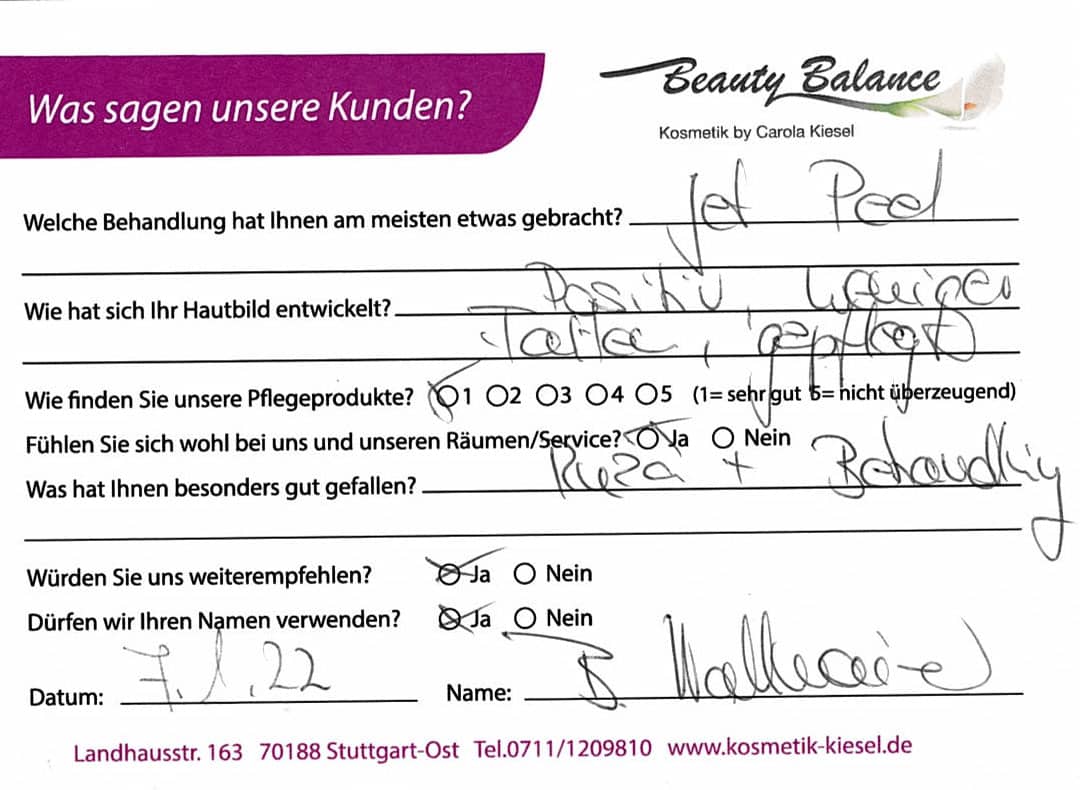 Was sagen unsere Kunden?
Beauty Balance
Kosmetik by Carola Kiesel
Welche Behandlung hat Ihnen am meisten etwas gebracht? Jet Peel
Wie hat sich Ihr Hautbild entwickelt? Positiv,
gepflegt
Wie finden Sie unsere Pflegeprodukte? O1 O2 O3 O4 O5 (1= sehr gut 5= nicht überzeugend)
Fühlen Sie sich wohl bei uns und unseren Räumen/Service? O Ja O Nein
Was hat Ihnen besonders gut gefallen? + Behandlung
Würden Sie uns weiterempfehlen? O Ja O Nein
Dürfen wir Ihren Namen verwenden? O Ja O Nein
Datum: 7.1.22 Name: B.
Landhausstr. 163 70188 Stuttgart-Ost Tel.0711/1209810 www.kosmetik-kiesel.de